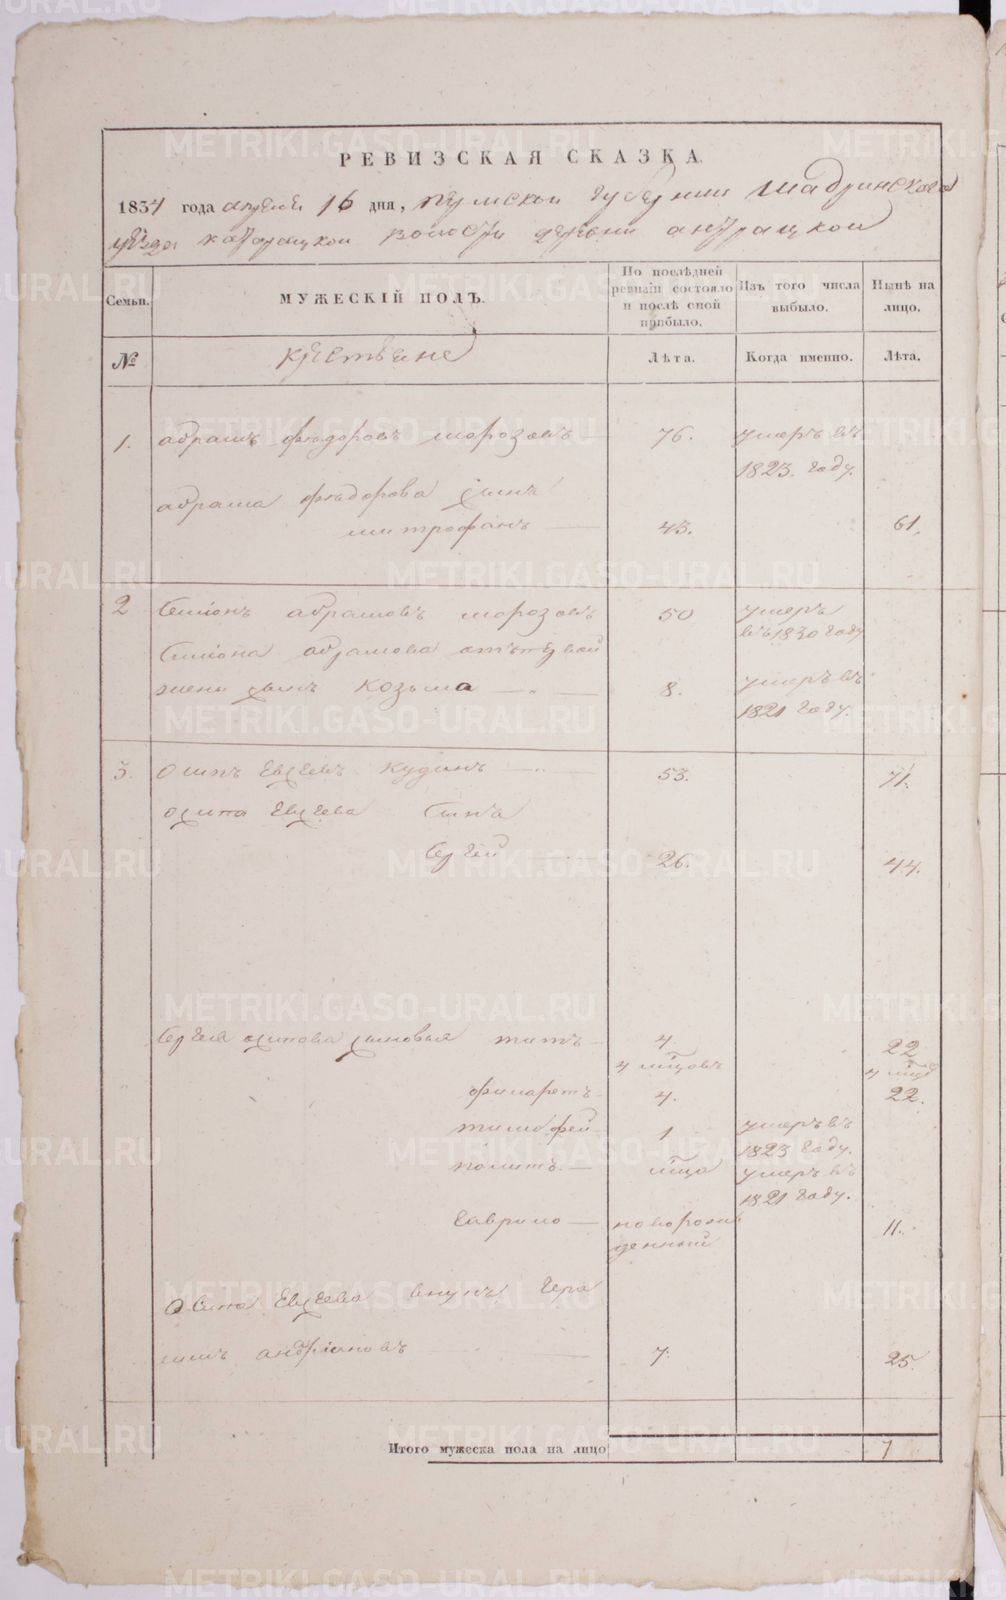 РЕВИЗСКАЯ СКАЗКА.
1834 года апреля 16 дня, пермской губернии Шадринскова
уезда катарацкой волости деревни антрацкой
Семьи.
МУЖЕСКІЙ ПОЛЪ.
По послѣдней ревизіи состояло и послѣ оной прибыло.
Изъ того числа выбыло.
Нынѣ на лицо.
№
крестьяне
Лѣта.
Когда именно.
Лѣта.
1. абрамъ фѣдоровъ морозовъ 76. умеръ въ
1823. году.
абрама фѣдорова сынъ
митрофанъ 43. 61.
2 Симіонъ абрамовъ морозовъ 50 умеръ
въ 1830 году
Симіона абрамова отъ первой
жены сынъ козьма 8. умеръ въ
1821 году.
3. Осипъ Евсеевъ кудинъ 53. 71.
осипа Евсеева сынъ
Сергей 26. 44.
Сергея осипова сыновья титъ 4. 22
4 мцовъ 4 мца
филаретъ 4. 22.
тимофей 1 умеръ въ
1823 году.
политъ мца умеръ въ
1821 году.
Гаврило новорож
денный 11.
осипа Евсеева внукъ Гера
симъ андріановъ 7. 25.
Итого мужеска пола на лицо 7
METRIKI.GASO-URAL.RU